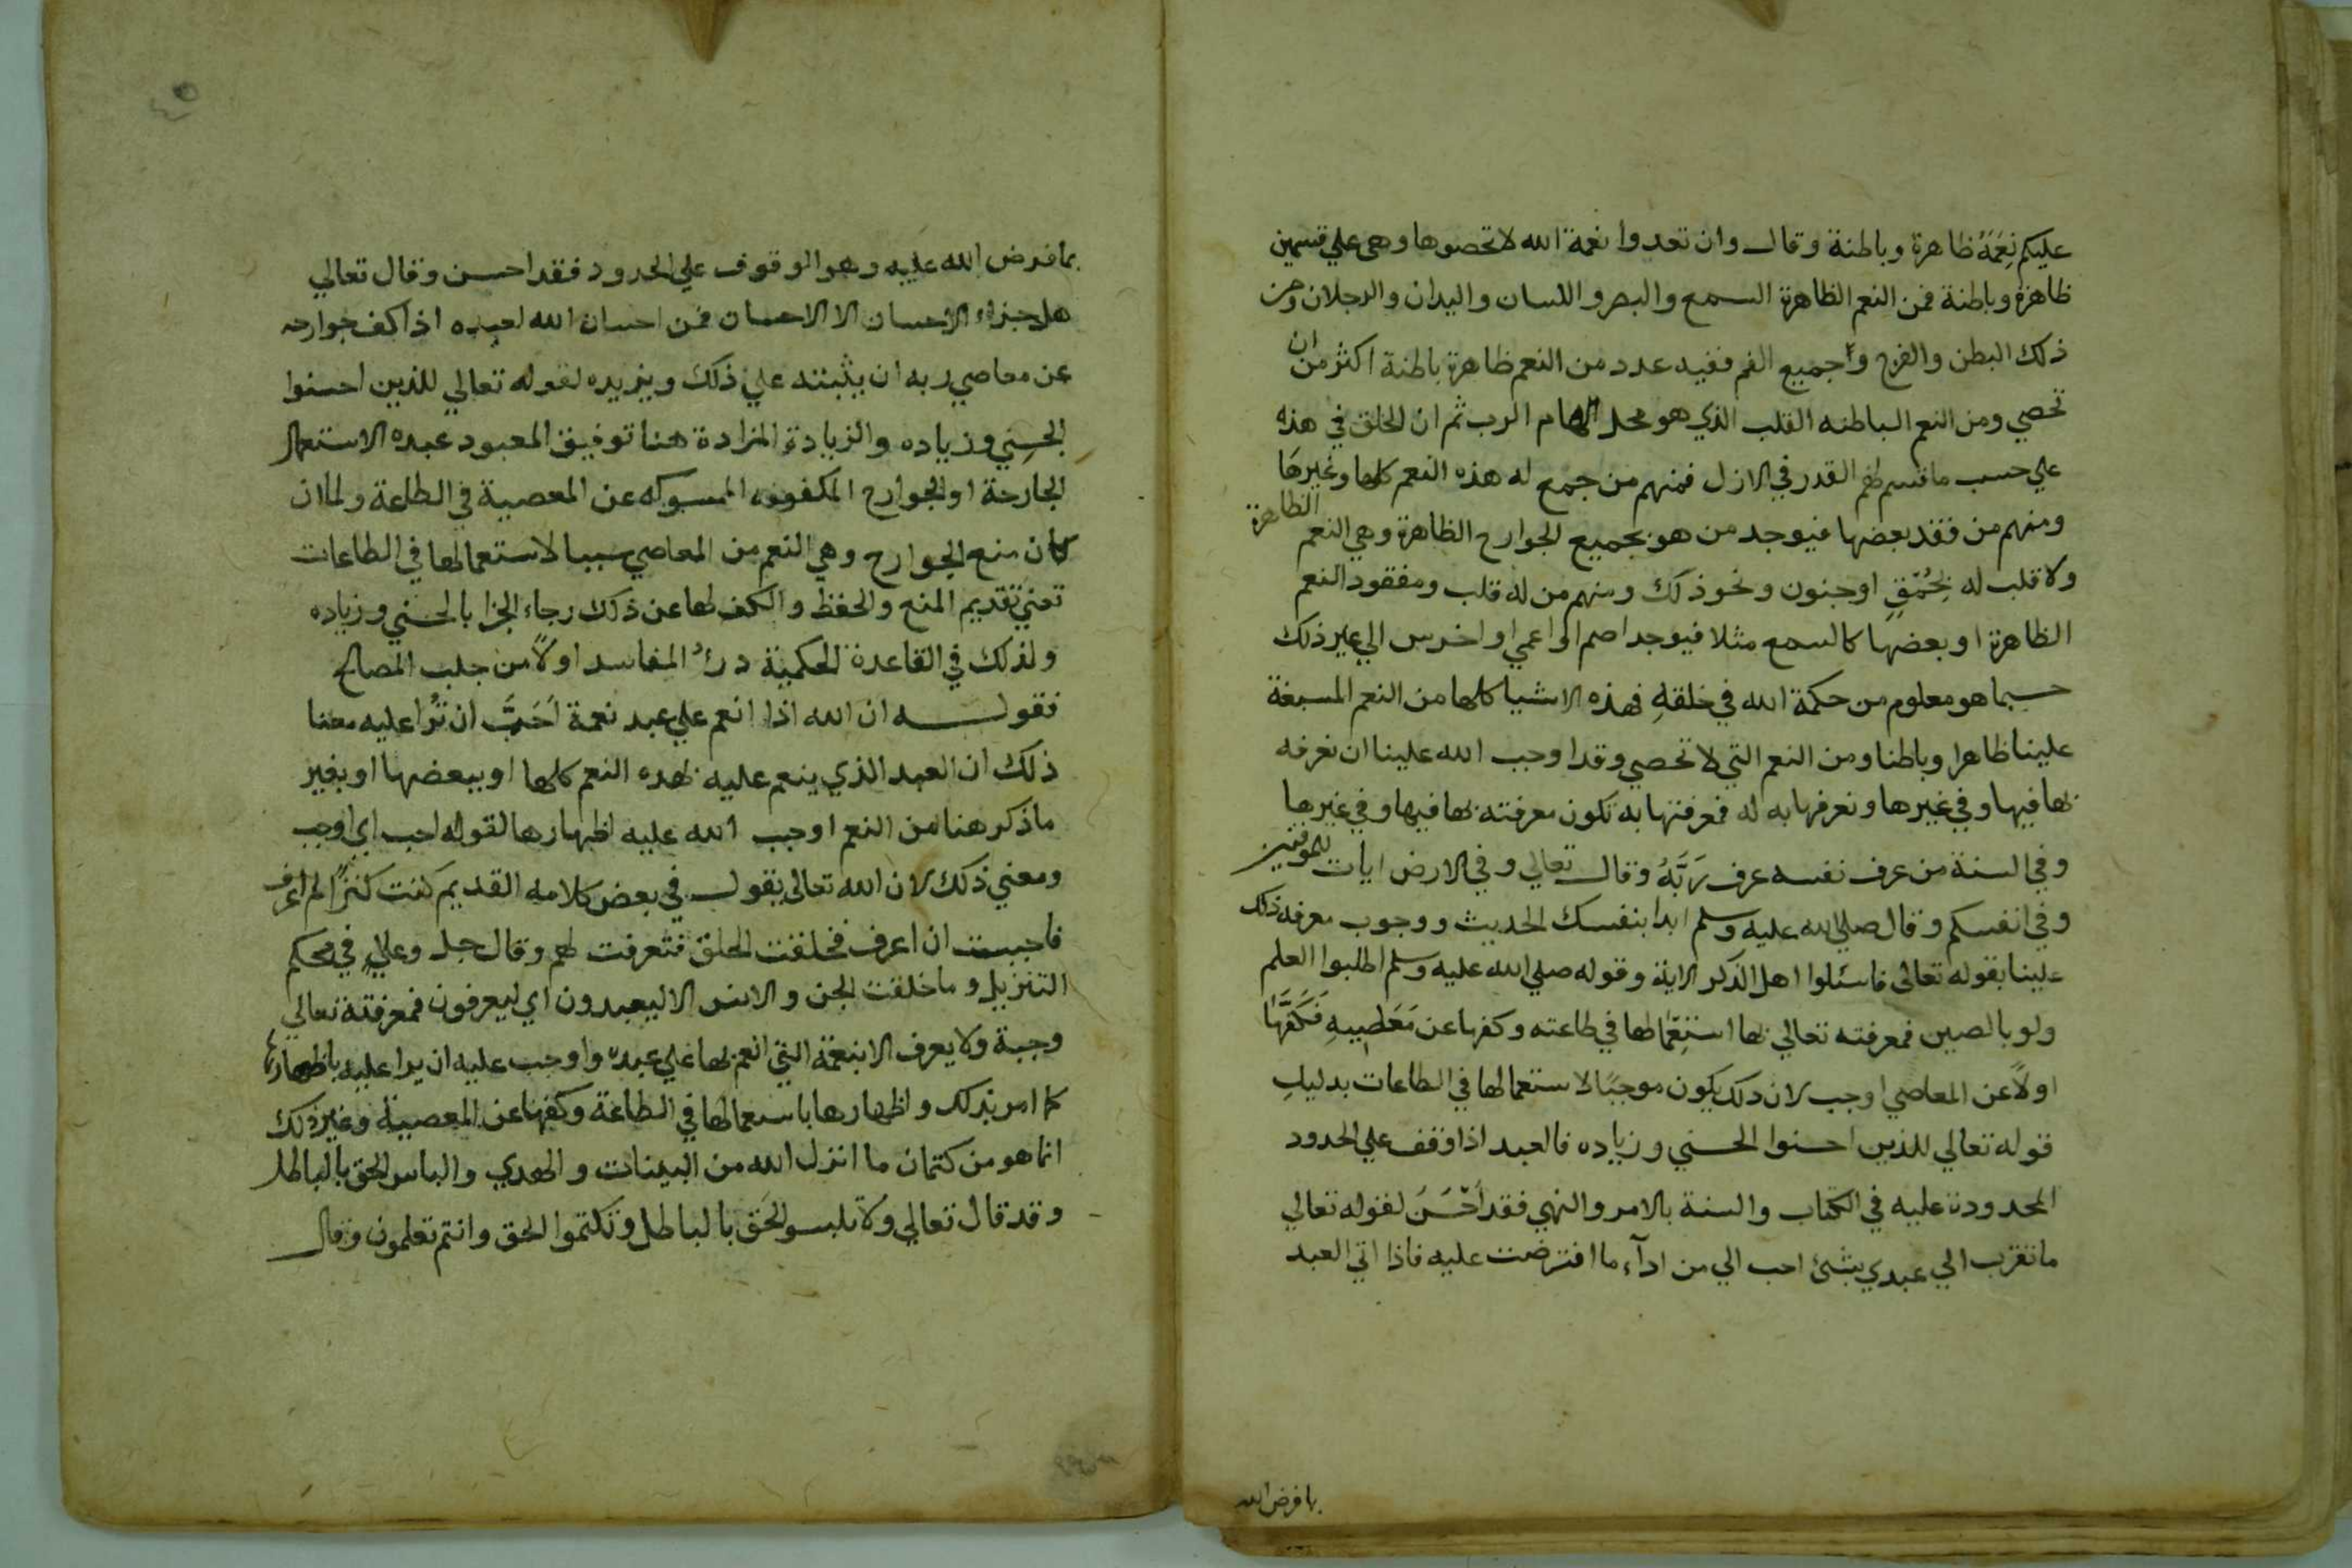 عليكم نِعَمَهُ ظاهرة وباطنة وقال وان تعدوا نعمة الله لا تحصوها وهي علي قسمين
ظاهرة وباطنة فمن النعم الظاهرة السمع والبصر واللسان واليدان والرجلان ومن
ذلك البطن والفرج واجميع الفم ففيه عدد من النعم ظاهرة باطنة اكثر من ان
تحصي ومن النعم الباطنه القلب الذي هو محل الهام الرب ثم ان الخلق في هذه
علي حسب ما قسم لهم القدر في الازل فمنهم من جمع له هذه النعم كلها وغيرها
ومنهم من فقد بعضها فيوجد من هو بجميع الجوارح الظاهرة وهي النعم الظاهرة
ولا قلب له لحُمْقٍ او جنون ونحو ذلك ومنهم من له قلب ومفقود النعم
الظاهرة او بعضها كالسمع مثلا فيوجد اصم او اعمي او اخرس الي غير ذلك
حسبما هو معلوم من حكمة الله في خلقهِ فهذه الاشيا كلها من النعم المسبغة
علينا ظاهرا وباطنا ومن النعم التي لا تحصي وقد اوجب الله علينا ان نعرفه
بها فيها وفي غيرها ونعرفها به له فمعرفتها به تكون معرفته بها فيها وفي غيرها
وفي السنة من عرف نفسه عرف رَبَّهُ وقال تعالي وفي الارض ايات للموقنين
وفي انفسكم وقال صلي الله عليه وسلم ابدا بنفسك الحديث ووجوب معرفة ذلك
علينا بقوله تعالى فاسئلوا اهل الذكر الاية وقوله صلي الله عليه وسلم اطلبوا العلم
ولو بالصين فمعرفته تعالي بها استِعْمالها في طاعته وكفها عن مَعَاصِيهِ فَكَفَّهَا
اولاً عن المعاصي اوجب لان ذلك يكون موجبًا لاستعمالها في الطاعات بدليلِ
قوله تعالي للذين احسنوا الحسني وزياده فالعبد اذا وقف علي الحدود
المحدودة عليه في الكتاب والسنة بالامر والنهي فقد اَحْسَنَ لقوله تعالي
ما تقرب الي عبدي بشئ احب الي من ادآء ما افترضت عليه فاذا اتي العبد
بما فرض الله
بما فرض الله عليه وهو الوقوف علي الحدود فقد احسن وقال تعالي
هل جزاء الاحسان الا الاحسان فمن احسان الله لعبده اذا كف جوارحه
عن معاصي ربه ان يثبته علي ذلك ويزيده لقوله تعالي للذين احسنوا
الحسني وزياده والزيادة المزادة هنا توفيق المعبود عبده الاستعمال
الجارحة او الجوارح المكفوفه الممسوكه عن المعصية في الطاعة ولما ان
كان منع الجوارح وهي النعم من المعاصي سببا لاستعمالها في الطاعات
تعني تقديم المنع والحفظ والكف لها عن ذلك رجاء الجزا بالحسني وزياده
ولذلك في القاعدة الحكمية درءُ المفاسد اولاً من جلب المصالح
فقوله ان الله اذا انعم علي عبد نعمة اَحَبَّ ان تُرا عليه معنا
ذلك ان العبد الذي ينعم عليه بهده النعم كلها او ببعضها او بغير
ما ذكر هنا من النعم اوجب الله عليه اظهارها لقوله احب اي اوجب
ومعني ذلك لان الله تعالى يقول في بعض كلامه القديم كنت كنزًا لم اعرف
فاحببت ان اعرف فخلقت الخلق فتعرفت لهم وقال جل وعلي في محكم
التنزيل وما خلقت الجن والانس الا ليعبدون اي ليعرفون فمعرفتة تعالي
وجبة ولا يعرف الا بنعمة التي انعم بها علي عبده واوجب عليه ان يرا عليه باظهارها
كما امر بذلك واظهارها باستعمالها في الطاعة وكفها عن المعصية وغير ذلك
انما هو من كتمان ما انزل الله من البينات والهدي والباس الحق بالباطل
وقد قال تعالي ولا تلبسو الحَق بالباطل وتكتموا الحق وانتم تعلمون وقال